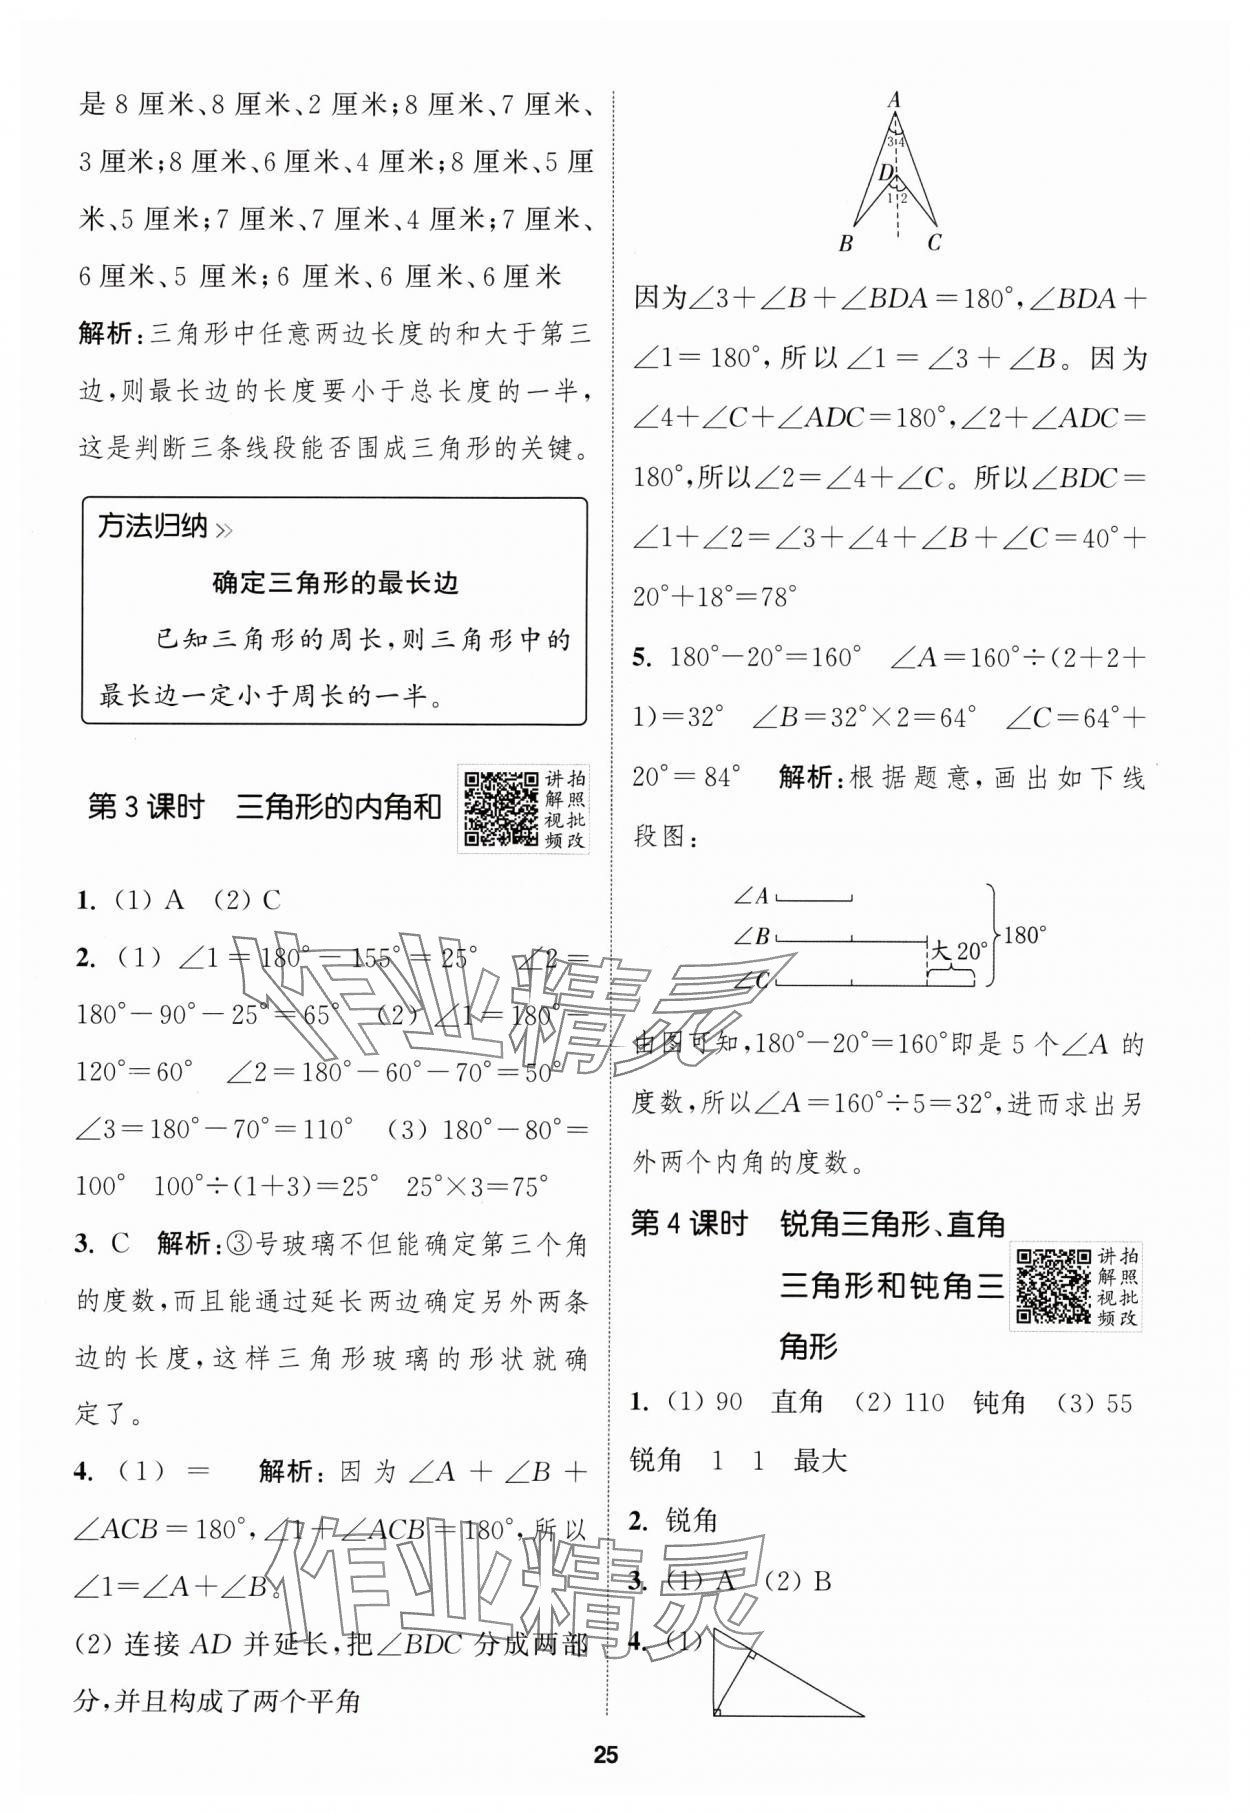 是8厘米、8厘米、2厘米;8厘米、7厘米、
3厘米;8厘米、6厘米、4厘米;8厘米、5厘
米、5厘米;7厘米、7厘米、4厘米;7厘米、
6厘米、5厘米;6厘米、6厘米、6厘米
解析:三角形中任意两边长度的和大于第三
边,则最长边的长度要小于总长度的一半,
这是判断三条线段能否围成三角形的关键。
方法归纳
确定三角形的最长边
已知三角形的周长,则三角形中的
最长边一定小于周长的一半。
第3课时 三角形的内角和
讲解视频 拍照批改
1. (1) A (2) C
2. (1) ∠1=180°-155°=25° ∠2=
180°-90°-25°=65° (2) ∠1=180°-
120°=60° ∠2=180°-60°-70°=50°
∠3=180°-70°=110° (3) 180°-80°=
100° 100°÷(1+3)=25° 25°×3=75°
3. C 解析:③号玻璃不但能确定第三个角
的度数,而且能通过延长两边确定另外两条
边的长度,这样三角形玻璃的形状就确
定了。
4. (1) = 解析:因为∠A+∠B+
∠ACB=180°,∠1+∠ACB=180°,所以
∠1=∠A+∠B。
(2) 连接AD并延长,把∠BDC分成两部
分,并且构成了两个平角
A
3 4
D
1 2
B C
因为∠3+∠B+∠BDA=180°,∠BDA+
∠1=180°,所以∠1=∠3+∠B。因为
∠4+∠C+∠ADC=180°,∠2+∠ADC=
180°,所以∠2=∠4+∠C。所以∠BDC=
∠1+∠2=∠3+∠4+∠B+∠C=40°+
20°+18°=78°
5. 180°-20°=160° ∠A=160°÷(2+2+
1)=32° ∠B=32°×2=64° ∠C=64°+
20°=84° 解析:根据题意,画出如下线
段图:
∠A
∠B
∠C
大20°
180°
由图可知,180°-20°=160°即是5个∠A的
度数,所以∠A=160°÷5=32°,进而求出另
外两个内角的度数。
第4课时 锐角三角形、直角
三角形和钝角三
角形
讲解视频 拍照批改
1. (1) 90 直角 (2) 110 钝角 (3) 55
锐角 1 1 最大
2. 锐角
3. (1) A (2) B
4. (1)
作业精灵
作业精灵
25